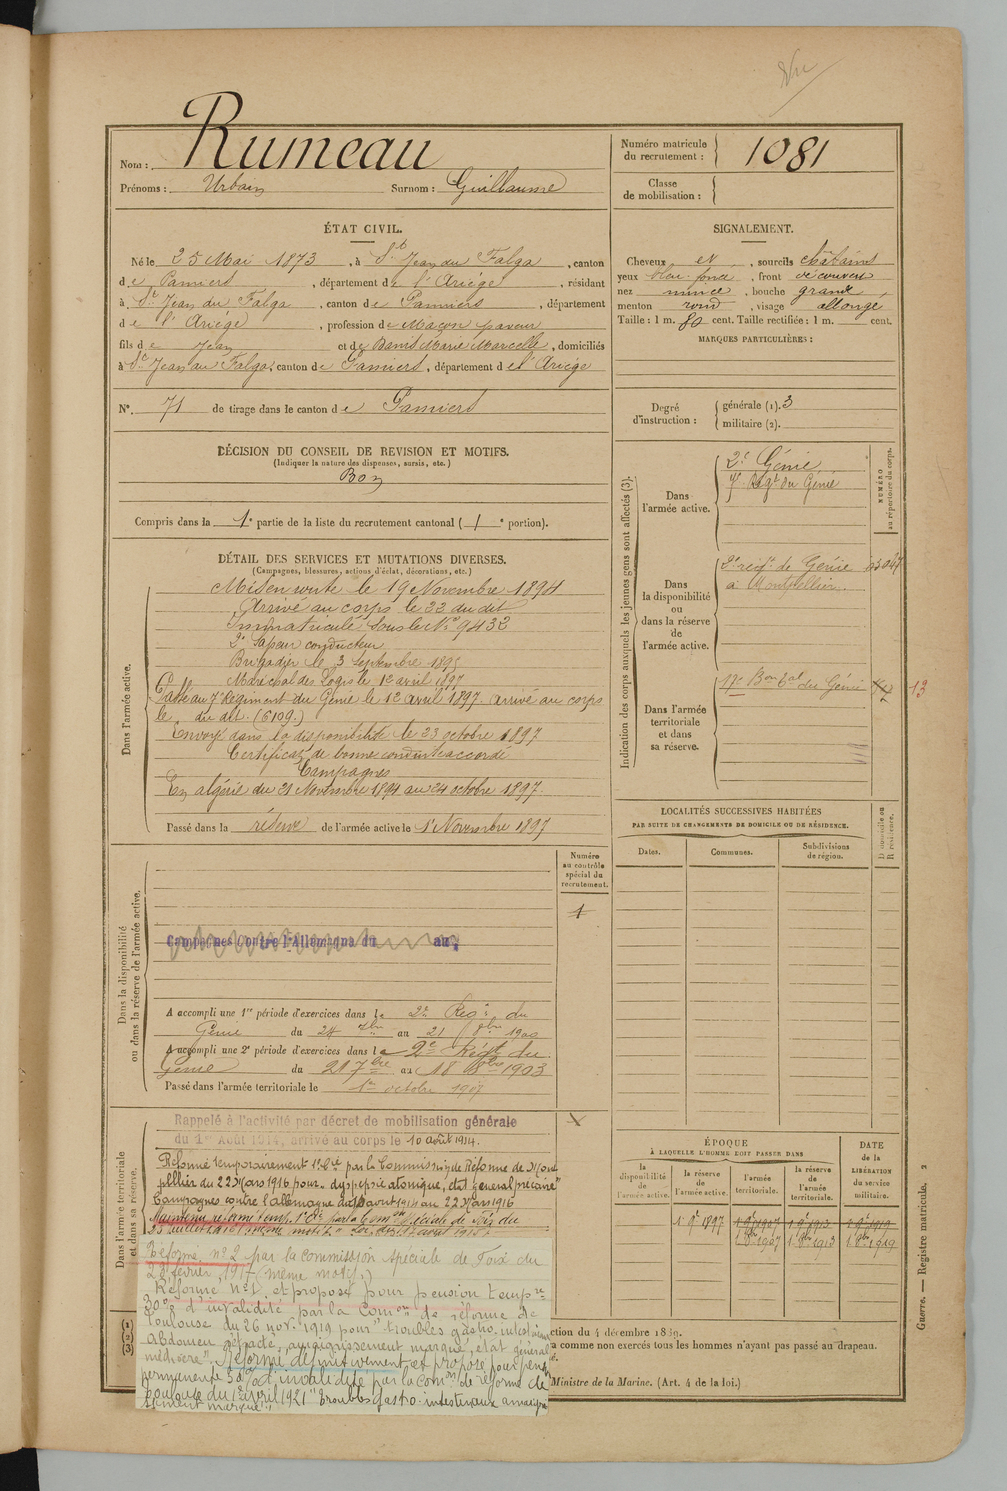 Nom : Rumeau
Prénoms : Urbain Surnom : Guillaume
Numéro matricule
du recrutement : 1081
Classe
de mobilisation :
ÉTAT CIVIL.
Né le 25 Mai 1873, à St Jean du Falga, canton
de Pamiers, département de l'Ariège, résidant
à St Jean du Falga, canton de Pamiers, département
de l'Ariège, profession de Maçon paveur
fils de Jean et de Marie Marcelle, domiciliés
à St Jean du Falga, canton de Pamiers, département de l'Ariège
N° 71 de tirage dans le canton de Pamiers
SIGNALEMENT.
Cheveux et, sourcils châtains
yeux bleu foncé, front découvert
nez mince, bouche grande
menton rond, visage allongé
Taille : 1 m. 80 cent. Taille rectifiée : 1 m. cent.
MARQUES PARTICULIÈRES :
Degré
d'instruction :
générale (1). 3
militaire (2).
DÉCISION DU CONSEIL DE REVISION ET MOTIFS.
(Indiquer la nature des dispenses, sursis, etc.)
Bon
Compris dans la 1e partie de la liste du recrutement cantonal (1e portion).
DÉTAIL DES SERVICES ET MUTATIONS DIVERSES.
(Campagnes, blessures, actions d'éclat, décorations, etc.)
Dans l'armée active.
Mis en route le 19 Novembre 1894
Arrivé au corps le 22 du dit
Immatriculé sous le No 9432
2e Sapeur conducteur
Brigadier le 3 Septembre 1895
Maréchal des Logis le 12 avril 1897
Passé au 7e Régiment du Génie le 12 avril 1897. arrivé au corps
le du dit. (6109.)
Envoyé dans la disponibilité le 23 octobre 1897
Certificat de bonne conduite accordé
Campagnes
En algérie du 21 Novembre 1894 au 24 octobre 1897
Passé dans la réserve de l'armée active le 1er Novembre 1897
Indication des corps auxquels les jeunes gens sont affectés (3).
NUMÉRO
au répertoire du corps.
Dans
l'armée active.
2e Génie
7e Régt du Génie
Dans
la disponibilité
ou
dans la réserve
de
l'armée active.
2e régt de Génie
à Montpellier.
Dans l'armée
territoriale
et dans
sa réserve.
17e Bon tal du Génie
13
LOCALITÉS SUCCESSIVES HABITÉES
PAR SUITE DE CHANGEMENTS DE DOMICILE OU DE RÉSIDENCE.
Dates.
Communes.
Subdivisions
de région.
D domicile ou
R résidence.
Dans la disponibilité
ou dans la réserve de l'armée active.
Numéro
au contrôle
spécial du
recrutement.
1
Campagnes contre l'Allemagne du au
A accompli une 1re période d'exercices dans le 2e Régt du
Génie du 24 7bre au 21 8bre 1900
A accompli une 2e période d'exercices dans le 2e Régt du
Génie du 21 7bre au 18 8bre 1903
Passé dans l'armée territoriale le 1er octobre 1907
Dans l'armée territoriale
et dans sa réserve.
Rappelé à l'activité par décret de mobilisation générale
du 1er Août 1914, arrivé au corps le 10 août 1914.
Réformé temporairement 1e Cie par la Commission de Réforme de Mont
pellier du 22 Mars 1916 pour "dyspepsie atonique, état général précaire"
Campagnes contre l'allemagne du 10 août 1914 au 22 Mars 1916
Maintenu réformé temp. par la Comon Spéciale de Foix du
Réformé no 2 par la commission spéciale de Foix du
février 1917 (même motif.)
Réformé no 1 et proposé pour pension tempre
30% d'invalidité par la Comon de réforme de
Toulouse du 26 nov. 1919 pour "troubles gastro-intestinaux
abdomen rétracté, amaigrissement marqué, état général
médiocre". Réformé définitivement et proposé pour pens
permanente 30% d'invalidité par la Comon de réforme de
Toulouse du 1er avril 1921 "troubles gastro-intestinaux amaigris
sement marqué"
ÉPOQUE
À LAQUELLE L'HOMME DOIT PASSER DANS
la
disponibilité
de
l'armée active.
la réserve
de
l'armée active.
l'armée
territoriale.
la réserve
de
l'armée
territoriale.
DATE
de la
LIBÉRATION
du service
militaire.
1 9bre 1897
1 9bre 1907
1 9bre 1913
1 9bre 1919
1 8bre 1907
1 8bre 1913
1 8bre 1919
(1)
(2)
(3)
ction du 4 décembre 1889.
a comme non exercés tous les hommes n'ayant pas passé au drapeau.
Ministre de la Marine. (Art. 4 de la loi.)
Guerre. — Registre matricule. 2